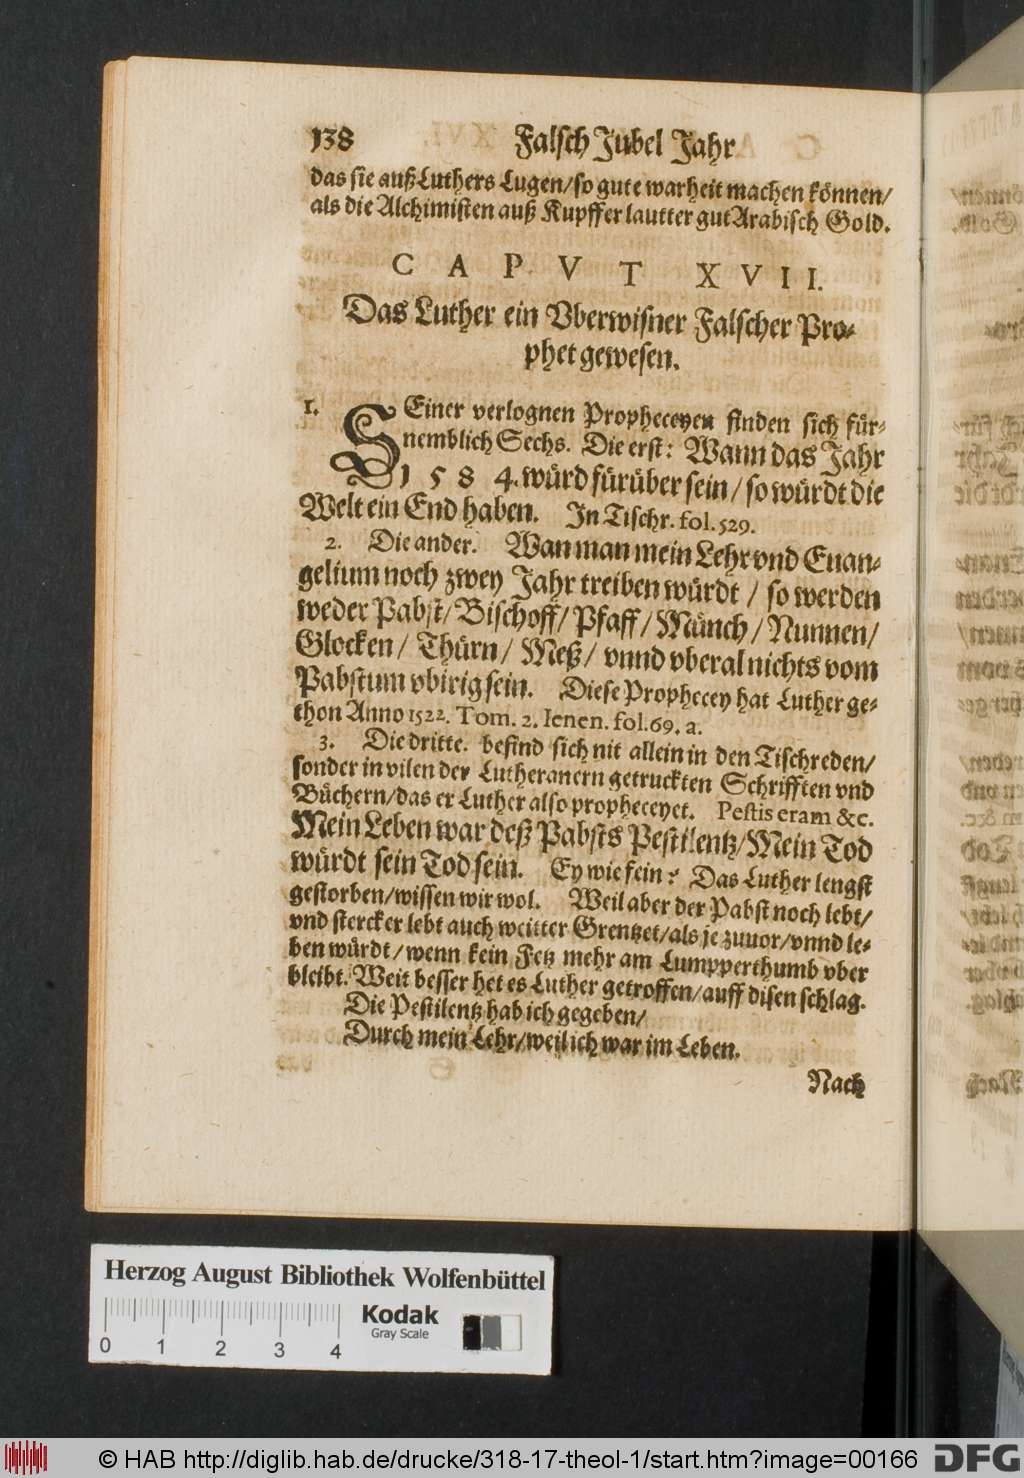 138 Falsch Jubel Jahr
das sie auß Luthers Lugen/so gute warheit machen können/
als die Alchimisten auß Kupffer lautter gut Arabisch Gold.
CAPVT XVII.
Das Luther ein Vberwisner Falscher Pro-
phet gewesen.
1. SEiner verlognen Propheceyen finden sich für-
nemblich Sechs. Die erst: Wann das Jahr
1584. würd fürüber sein/so würdt die
Welt ein End haben. In Tischr. fol. 529.
2. Die ander. Wan man mein Lehr vnd Euan-
gelium noch zwey Jahr treiben würdt/ so werden
weder Pabst/ Bischoff/ Pfaff/ Münch/ Nunnen/
Glocken/ Thürn/ Meß/ vnnd vberal nichts vom
Pabstum vbirig sein. Diese Prophecey hat Luther ge-
thon Anno 1522. Tom. 2. Ienen. fol. 69. a.
3. Die dritte. befind sich nit allein in den Tischreden/
sonder in vilen der Lutheranern getruckten Schrifften vnd
Büchern/das er Luther also propheceyet. Pestis eram &c.
Mein Leben war deß Pabsts Pestilentz/Mein Tod
würdt sein Tod sein. Ey wie fein? Das Luther lengst
gestorben/wissen wir wol. Weil aber der Pabst noch lebt/
vnd stercker lebt auch weitter Grentzet/als je zuuor/vnnd le-
ben würdt/wenn kein Fetz mehr am Lumpperthumb vber
bleibt. Weit besser het es Luther getroffen/auff disen schlag.
Die Pestilentz hab ich gegeben/
Durch mein Lehr/weil ich war im Leben.
Nach
Herzog August Bibliothek Wolfenbüttel
Kodak
Gray Scale
0 1 2 3 4
© HAB http://diglib.hab.de/drucke/318-17-theol-1/start.htm?image=00166
DFG